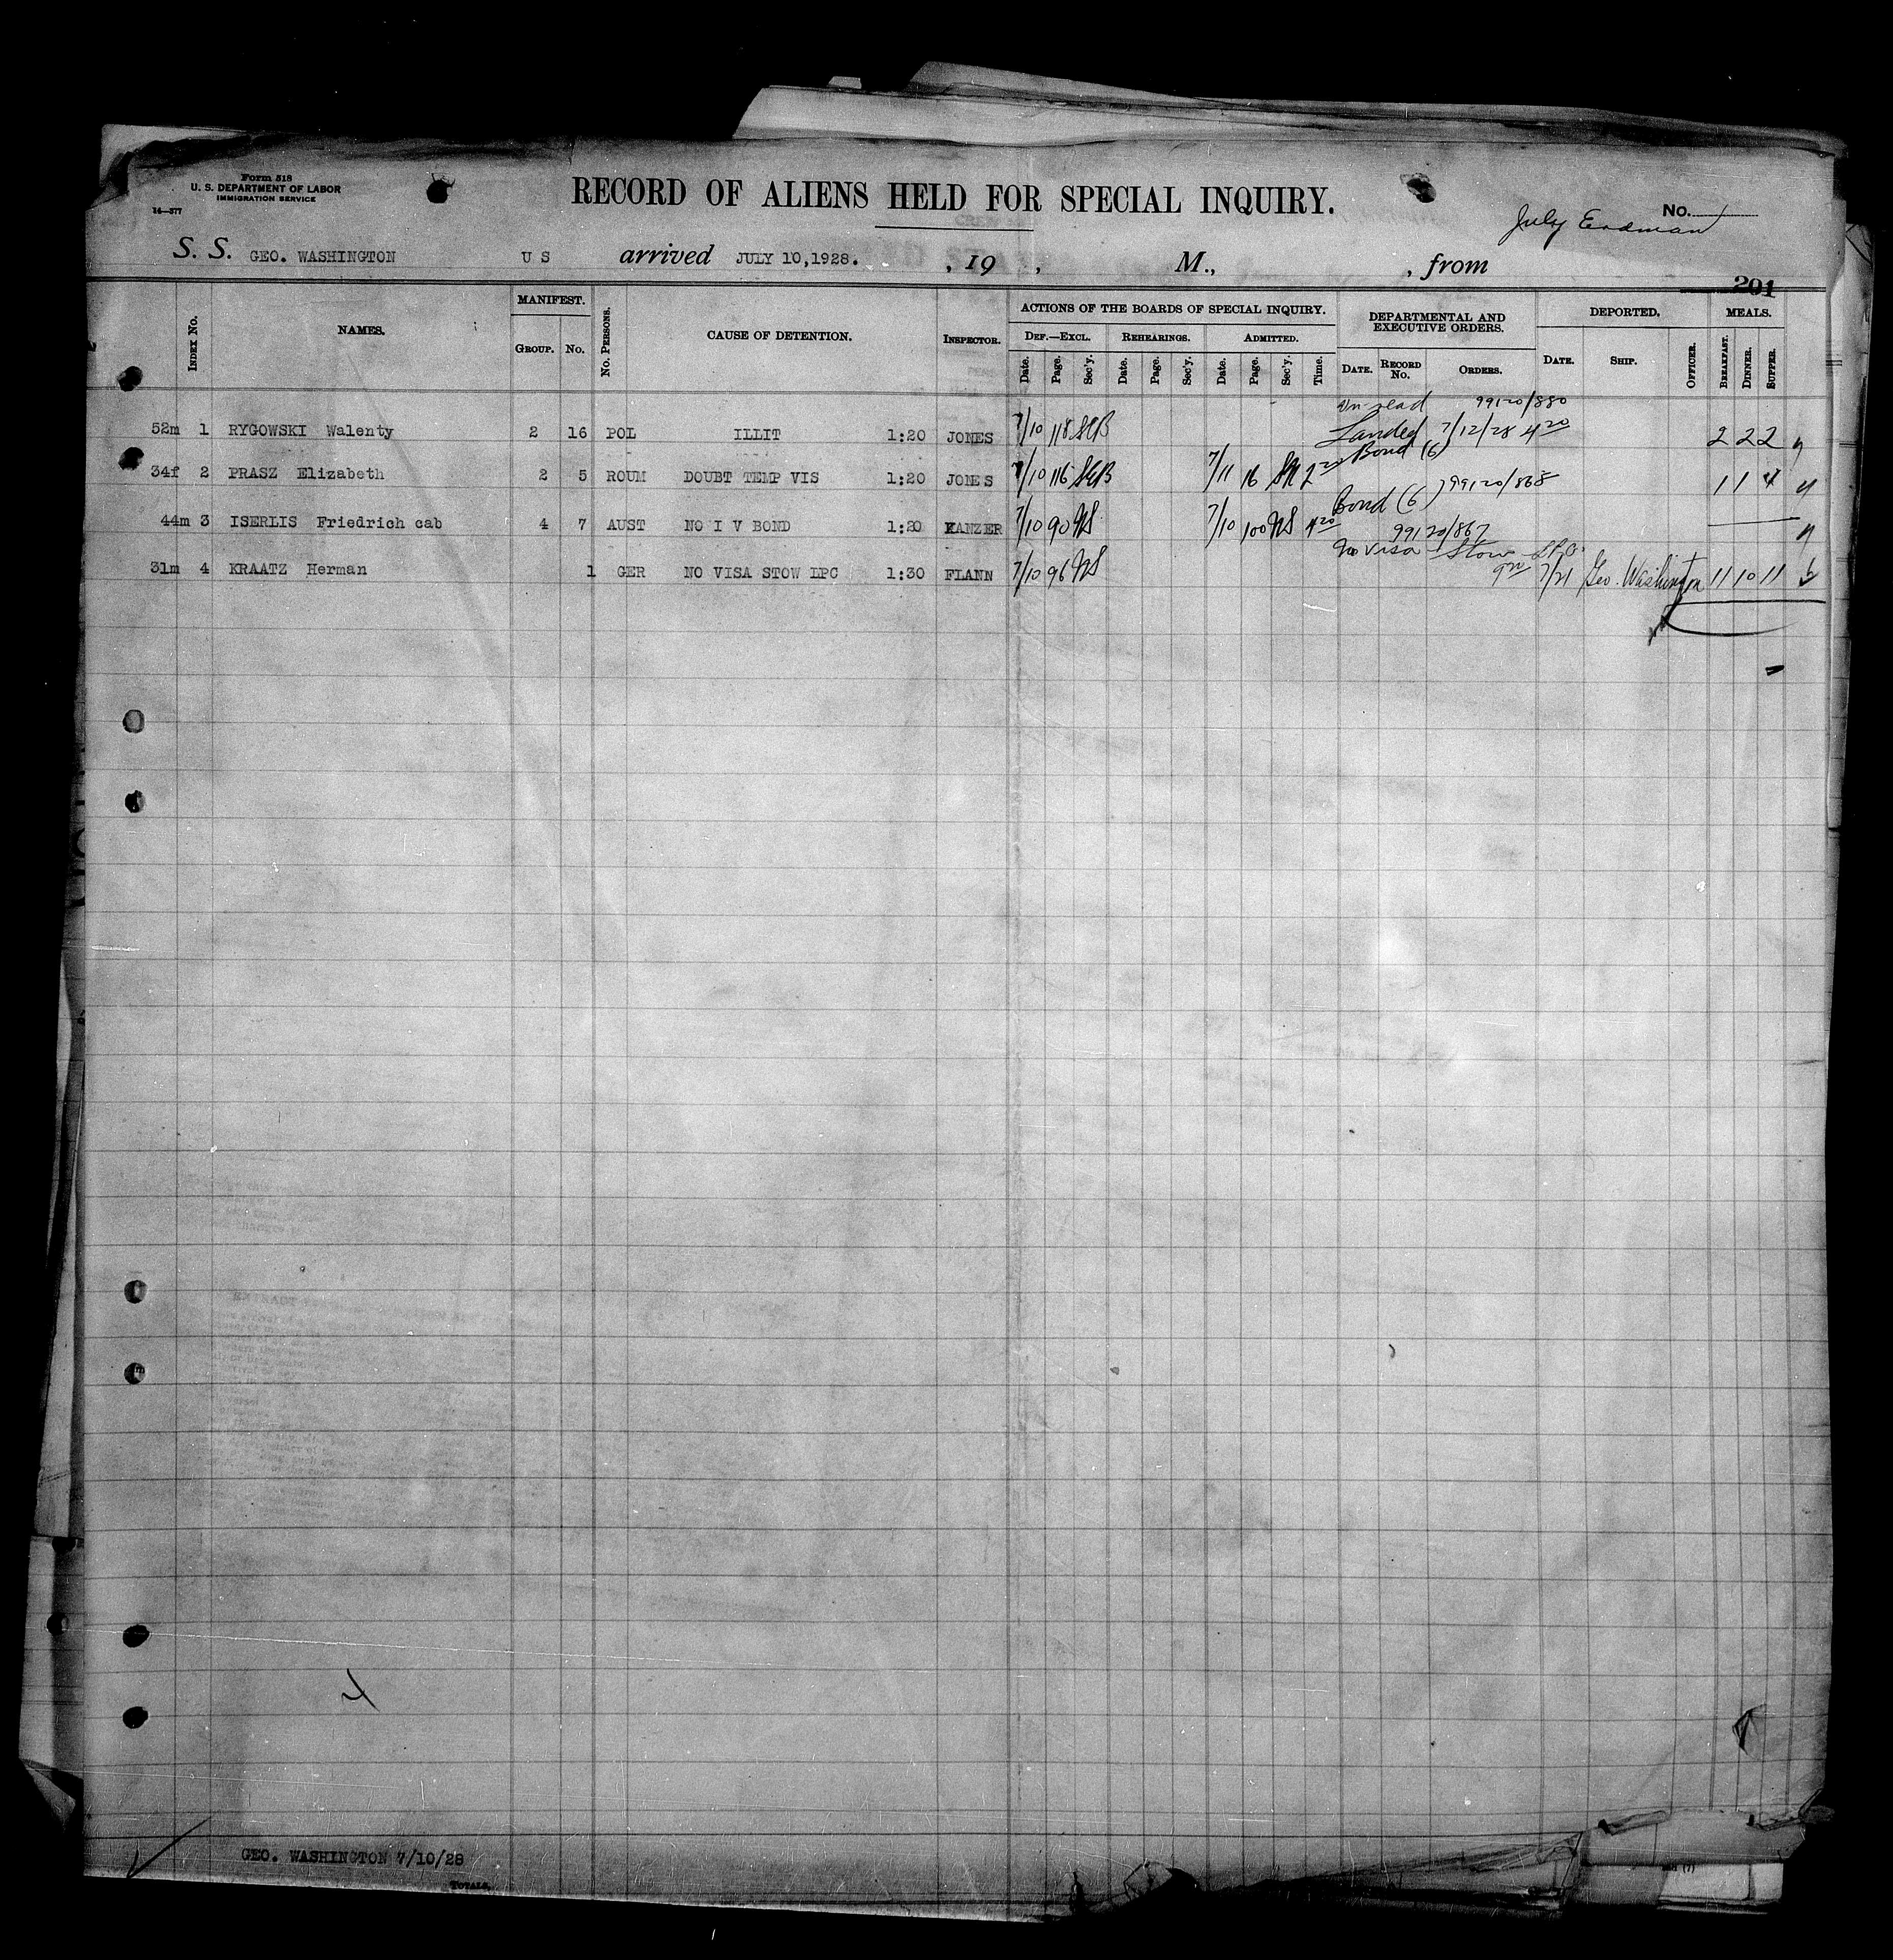 Form 518
U. S. DEPARTMENT OF LABOR
IMMIGRATION SERVICE
14—577
RECORD OF ALIENS HELD FOR SPECIAL INQUIRY.
No.
July Erdman
S. S. GEO. WASHINGTON U S arrived JULY 10,1928. , 19 , M., , from
201
INDEX NO. NAMES. MANIFEST. GROUP. NO. NO. PERSONS. CAUSE OF DETENTION. INSPECTOR. ACTIONS OF THE BOARDS OF SPECIAL INQUIRY. DEPARTMENTAL AND EXECUTIVE ORDERS. DEPORTED. MEALS.
DEF.—EXCL. REHEARINGS. ADMITTED.
Date. Page. Sec'y. Date. Page. Sec'y. Date. Page. Sec'y. Time. DATE. RECORD NO. ORDERS. DATE. SHIP. OFFICER. BREAKFAST. DINNER. SUPPER.
99120/880
52m 1 RYGOWSKI Walenty 2 16 POL ILLIT 1:20 JONES 7/10 118 SGB Landed 7/12/28 4 20 2 2 2
Bond (6)
34f 2 PRASZ Elizabeth 2 5 ROUM DOUBT TEMP VIS 1:20 JONES 7/10 116 SGB 7/11 16 99120/868 1 1
Bond (6)
44m 3 ISERLIS Friedrich cab 4 7 AUST NO I V BOND 1:20 KANZER 7/10 90 NS 7/10 100 NS 4 20 99120/867
No visa Stow LPC
31m 4 KRAATZ Herman 1 GER NO VISA STOW LPC 1:30 FLANN 7/10 96 NS 7/21 Geo. Washington 11 10 11
GEO. WASHINGTON 7/10/28
TOTALS.